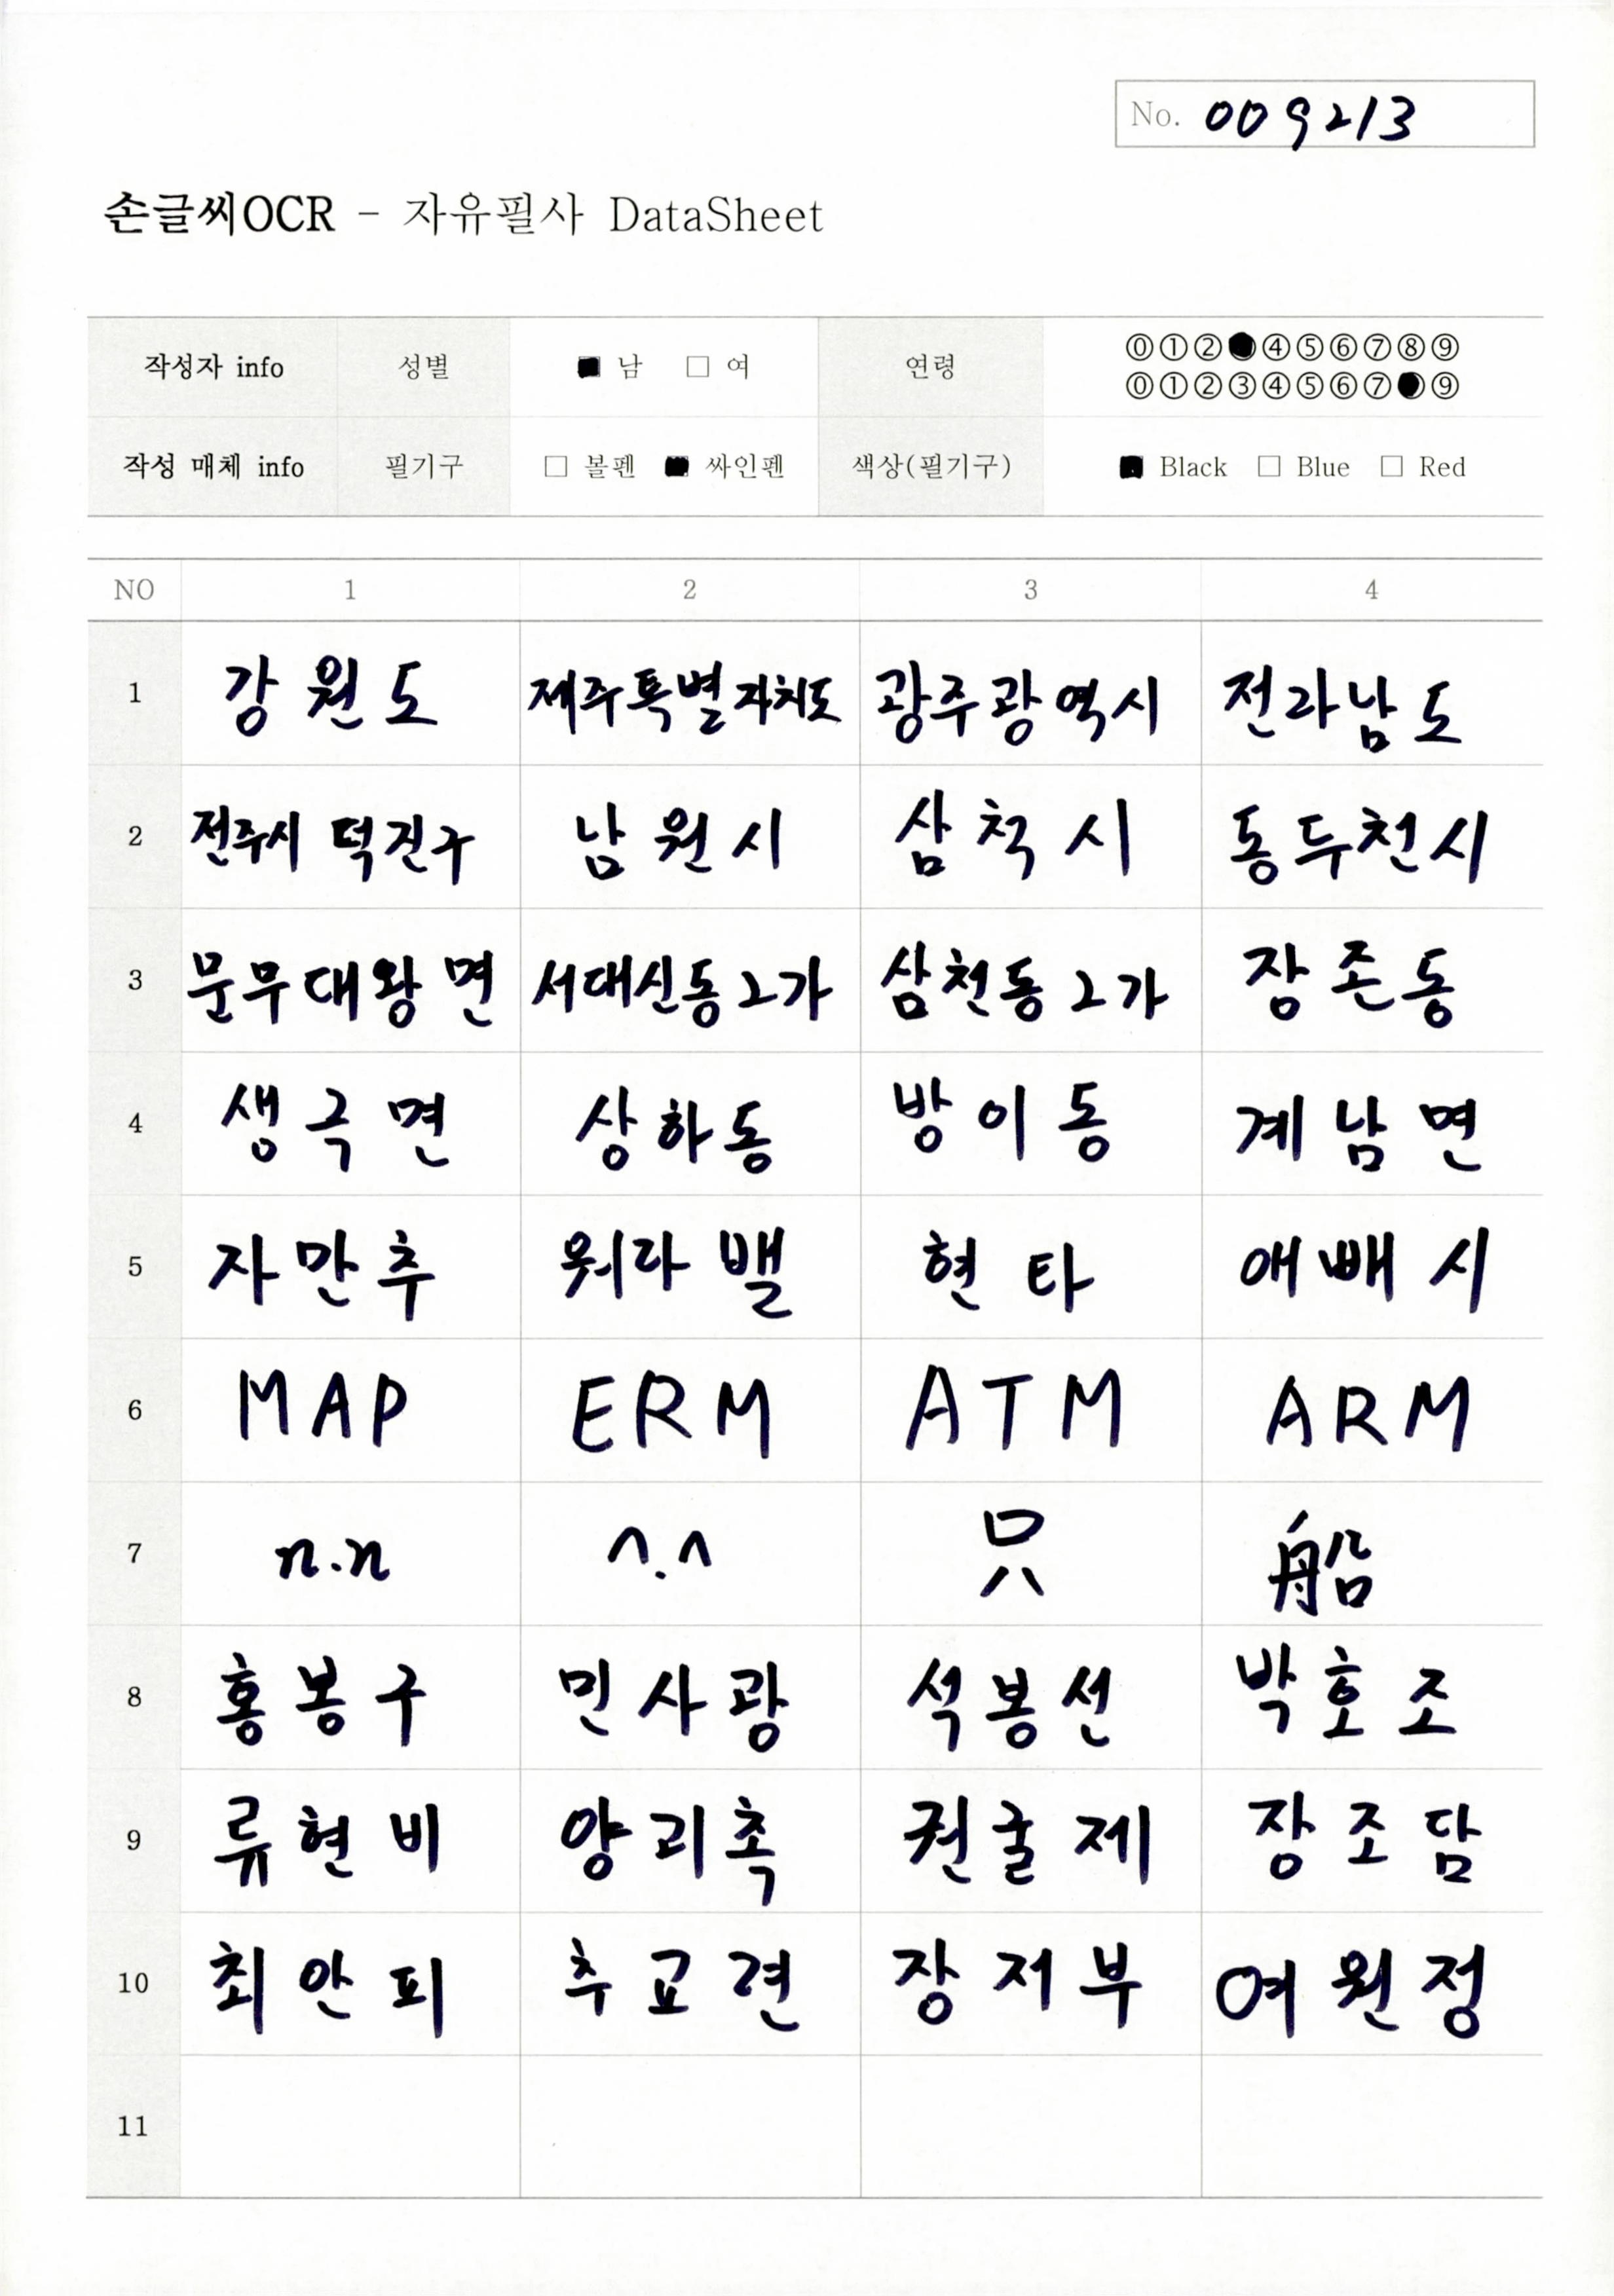 No. 009213
손글씨OCR - 자유필사 DataSheet
작성자 info 성별 ■ 남 □ 여 연령 ⓪①②●④⑤⑥⑦⑧⑨
⓪①②③④⑤⑥⑦●⑨
작성 매체 info 필기구 □ 볼펜 ■ 싸인펜 색상(필기구) ■ Black □ Blue □ Red
NO 1 2 3 4
1 강원도 제주특별자치도 광주광역시 전라남도
2 전주시 덕진구 남원시 삼척시 동두천시
3 문무대왕면 서대신동2가 삼천동2가 장존동
4 생극면 상하동 방이동 계남면
5 자만추 워라밸 현타 애빼시
6 MAP ERM ATM ARM
7 n.n ^.^ 只 船
8 홍봉구 민사광 석봉선 박호조
9 류현비 양괴촉 권굴제 장조담
10 최안피 추교련 장저부 여원정
11